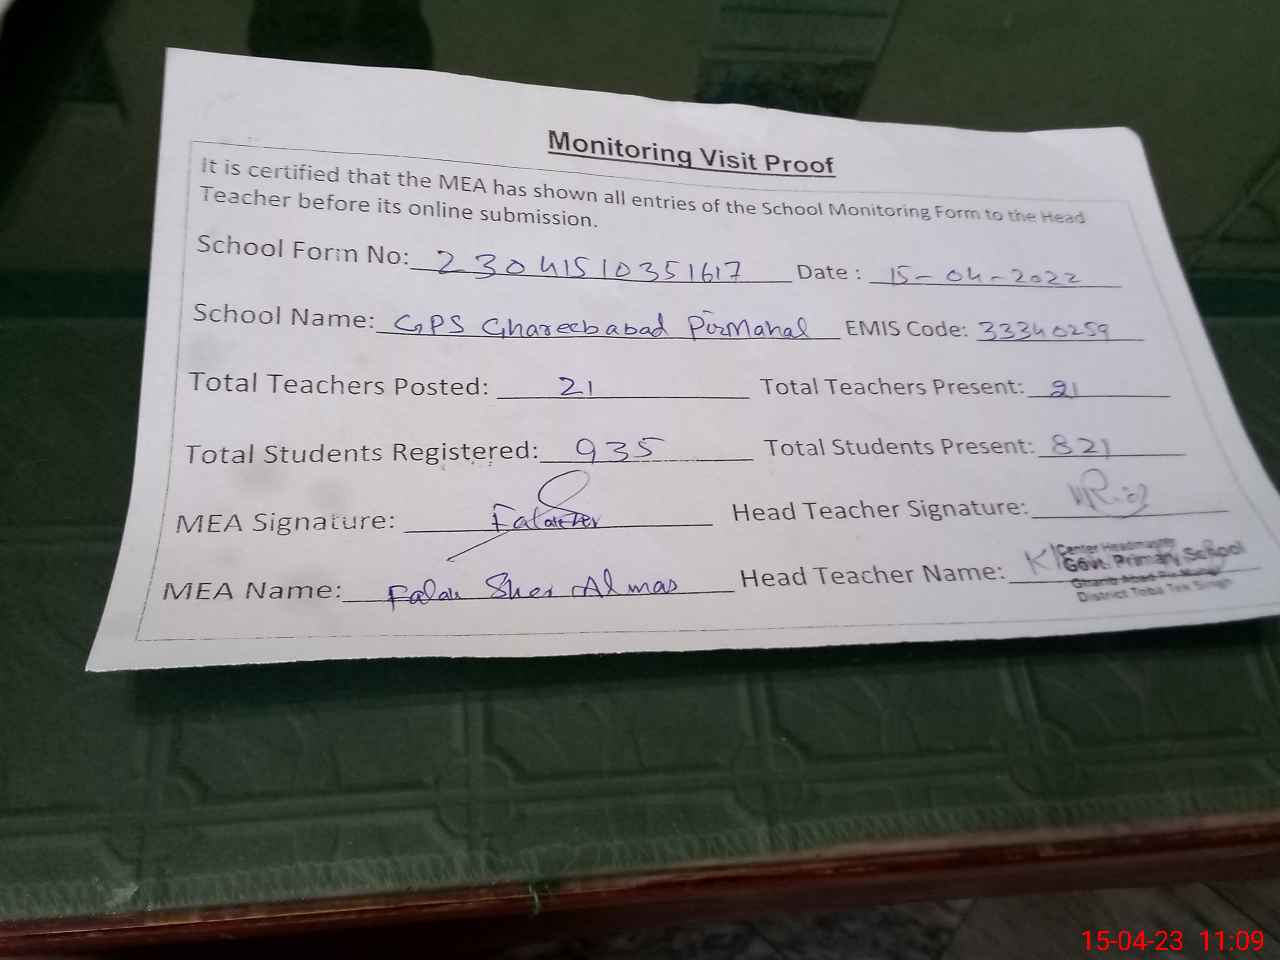 Monitoring Visit Proof
It is certified that the MEA has shown all entries of the School Monitoring Form to the Head
Teacher before its online submission.
School Form No: 23041510351617 Date : 15-04-2022
School Name: GPS Ghareebabad Pirmahal EMIS Code: 33340259
Total Teachers Posted: 21 Total Teachers Present: 21
Total Students Registered: 935 Total Students Present: 821
MEA Signature: Head Teacher Signature:
MEA Name: Falak Sher Almas Head Teacher Name:
Center Headmaster
Govt. Primary School
District Toba Tek Singh
15-04-23 11:09